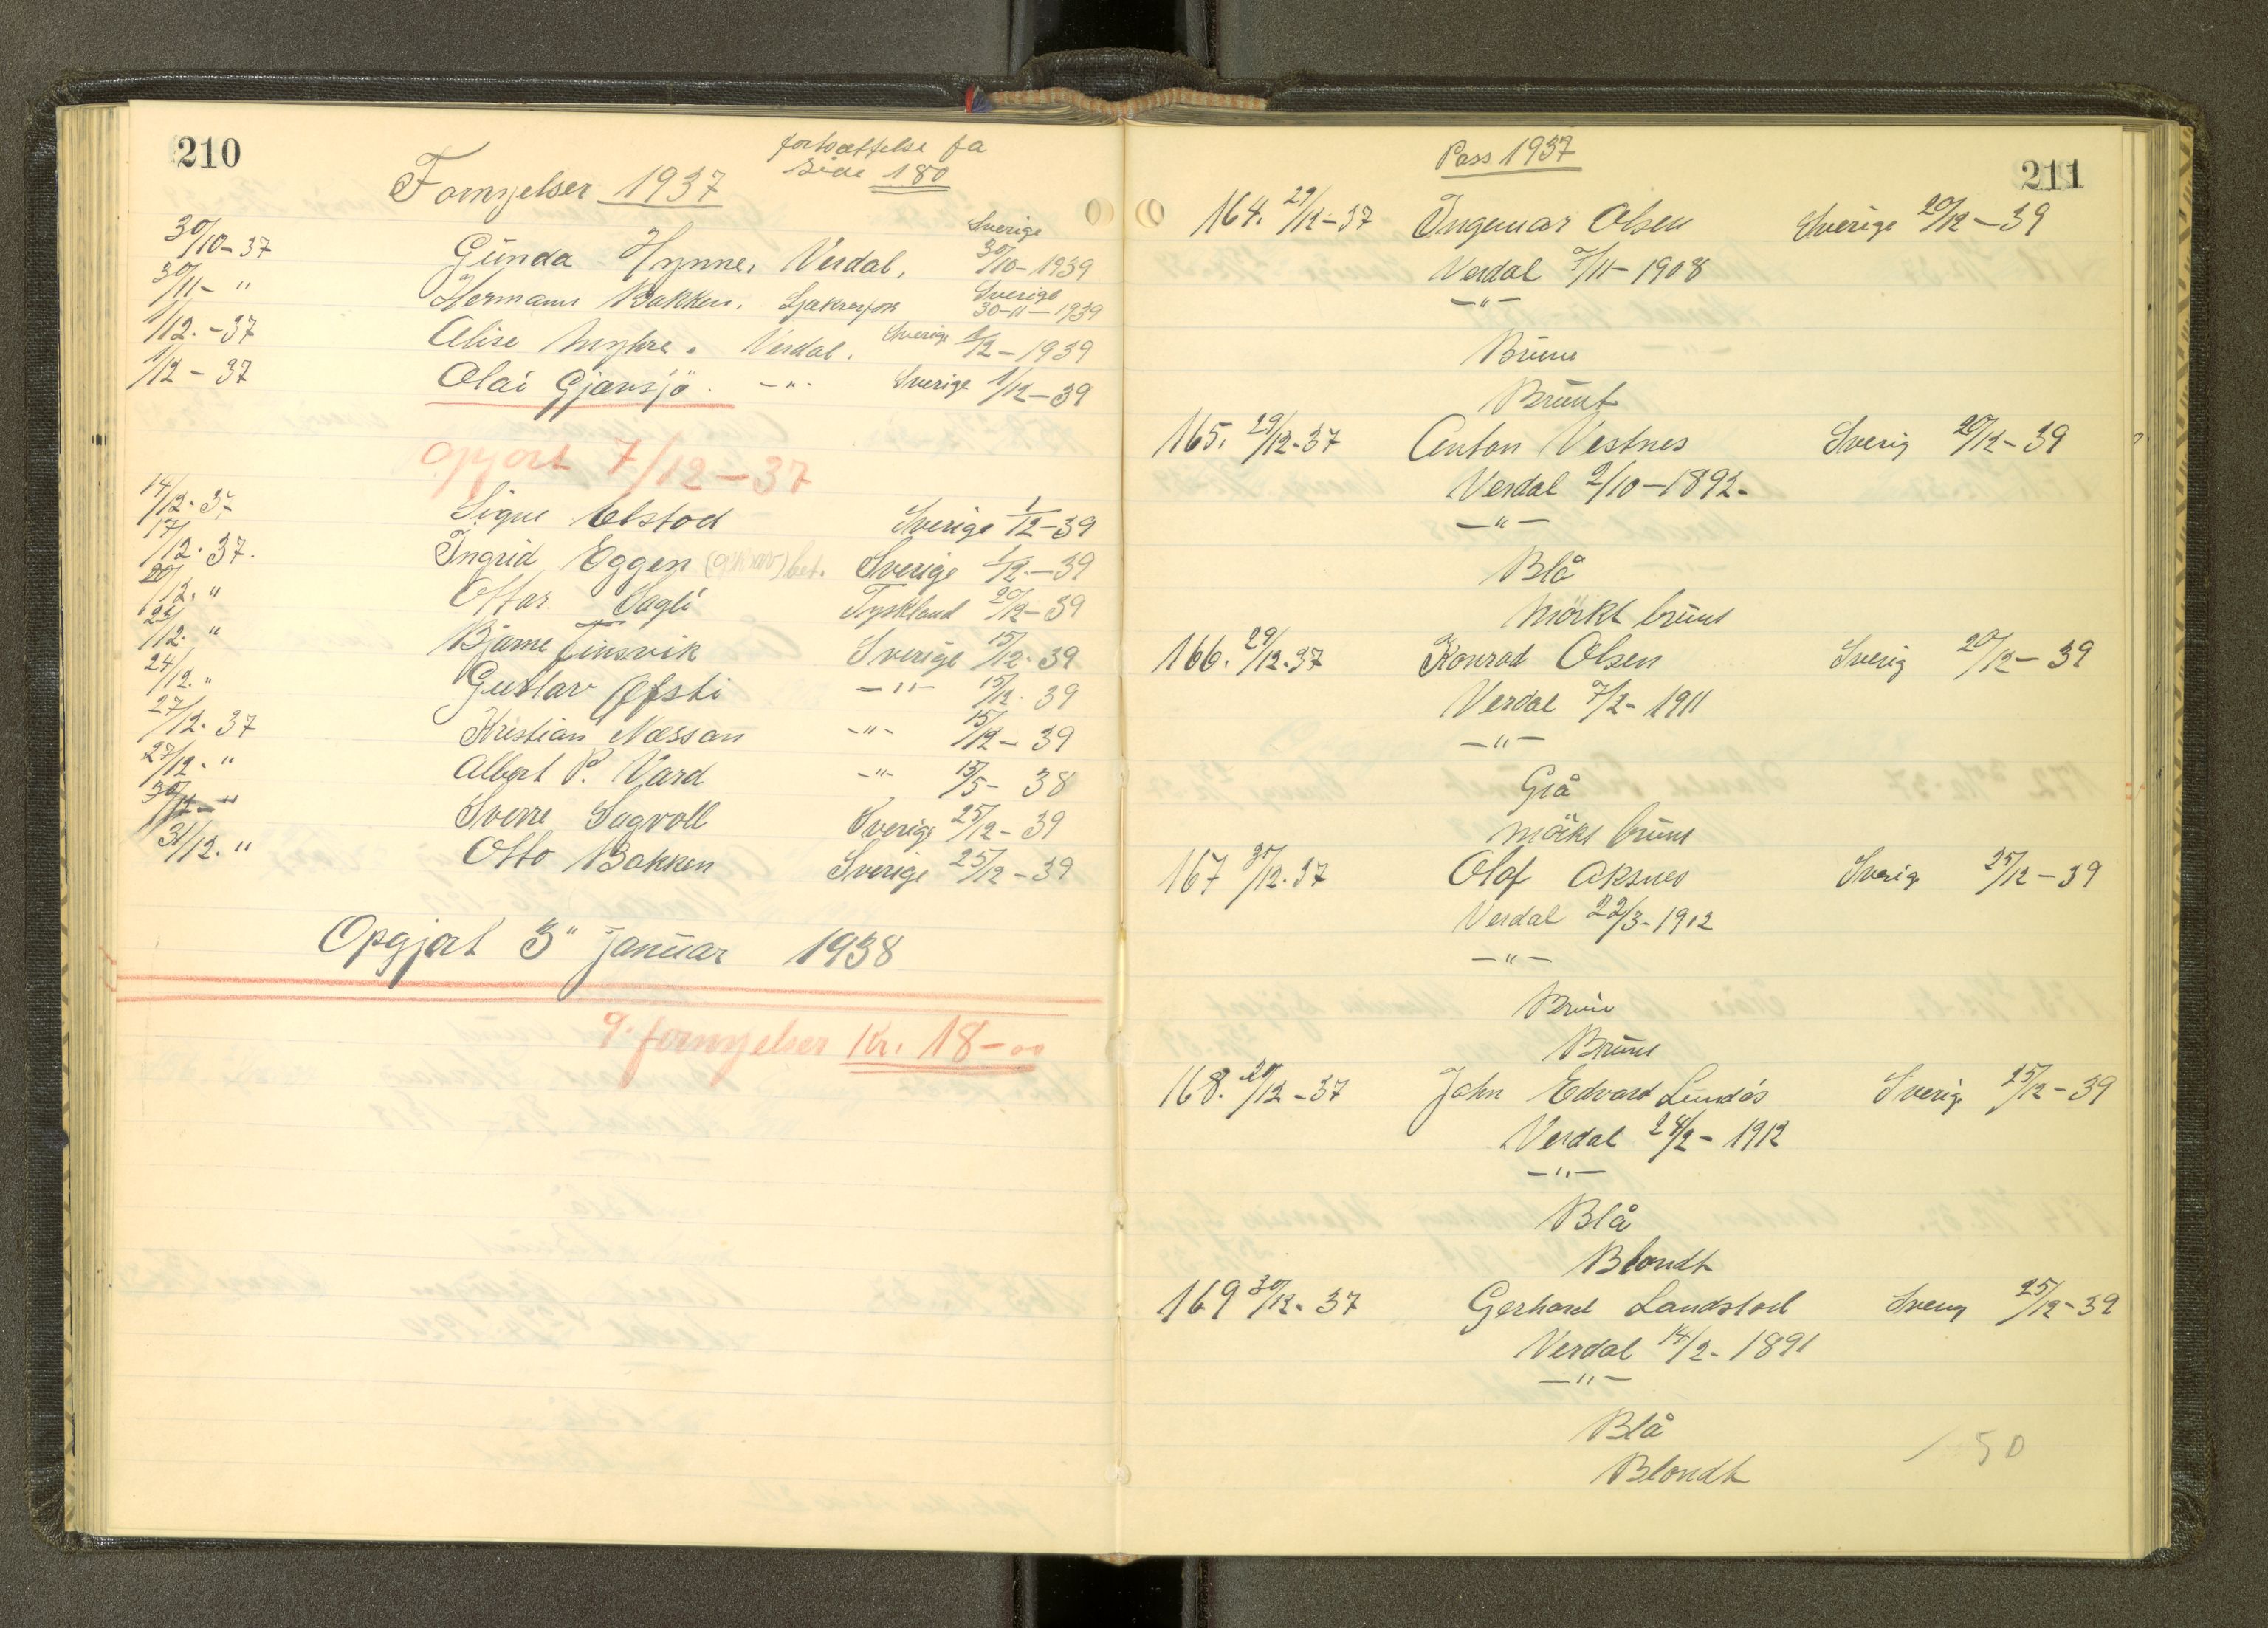 210
Fornyelser 1937
fortsættelse fa
side 180
30/10-37 Gunda Hynne, Verdal, Sverige 30/10-1939
30/11- " Hermann Bakken, Sverige 30-11-1939
1/12.-37 Alise Myhre. Verdal. Sverige 1/12-1939
1/12-37 Olai Gjersjö. -"- Sverige 1/12-39
Opgjort 7/12-37
14/12-37 Signe Elstad Sverige 1/12-39
17/12.37. Ingrid Eggen bet. Sverige 1/12.-39
20/12. " Ottar Sagli Tyskland 20/12-39
/12. " Bjarne Finsvik Sverige 15/12-39
24/12. " Gustav Øfsti -"- 15/12.39
27/12.37 Kristian Næssan -"- 15/12-39
27/12. " Albert P. Vard -"- 15/5-38
30/12-" Sverre Sagvoll Sverige 25/12-39
31/12. " Otto Bakken Sverige 25/12-39
Opgjort 3" januar 1938
9. fornyelser Kr. 18-00
211
Pass 1937
164. 29/12-37 Ingemar Olsen Sverige 20/12-39
Verdal 7/11-1908
-"-
Brune
Brunt
165. 29/12-37 Anton Vestnes Sverig 20/12-39
Verdal 2/10-1892-
-"-
Blå
mörkt brunt
166. 29/12.37 Konrad Olsen Sverig 20/12-39
Verdal 7/2-1911
-"-
Grå
mörkt brunt
167 30/12.37 Olaf Aksnes Sverig 25/12-39
Verdal 22/3-1912
-"-
Brun
Brunt
168. /12-37 John Edvard Lundås Sverig 25/12-39
Verdal 24/2-1912
-"-
Blå
Blondt
169 30/12-37 Gerhard Landstad Sverig 25/12-39
Verdal 14/2-1891
-"-
Blå
Blondt
50